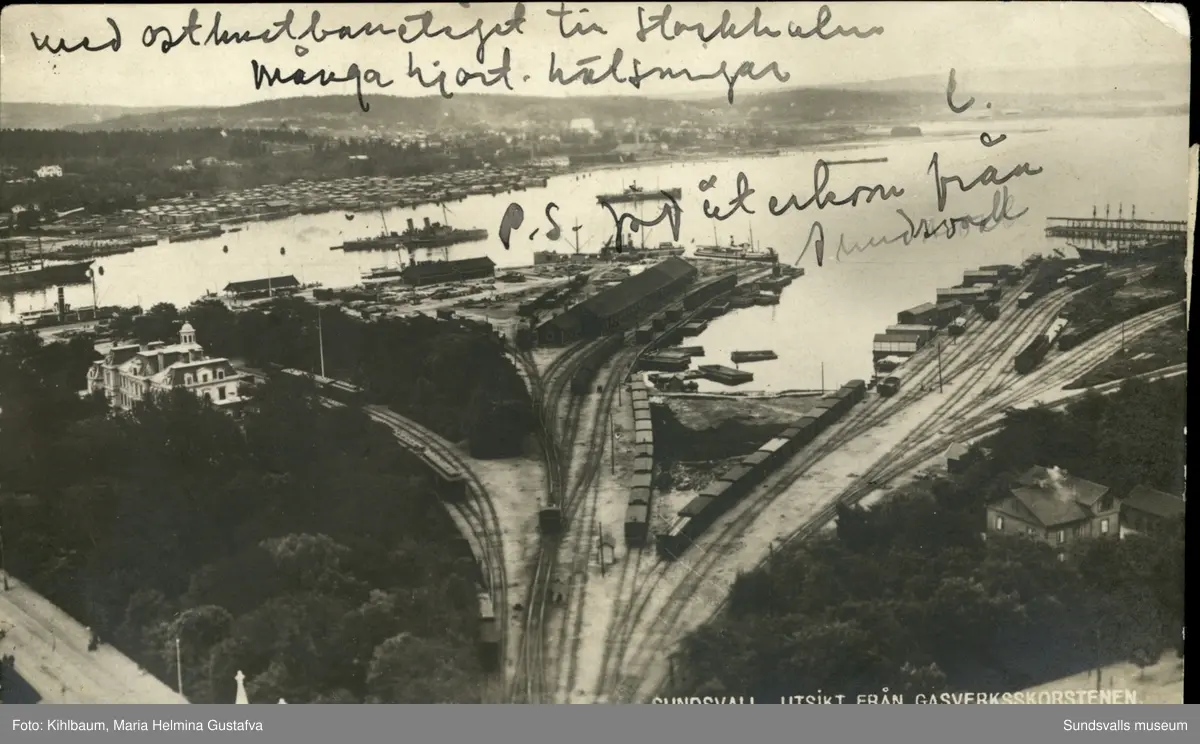 med ostkustbanetåget till Stockholm
många hjärt. hälsningar
L.
P.S. jag återkom från
Sundsvall
SUNDSVALL. UTSIKT FRÅN GASVERKSSKORSTENEN.
Foto: Kihlbaum, Maria Helmina Gustafva
Sundsvalls museum